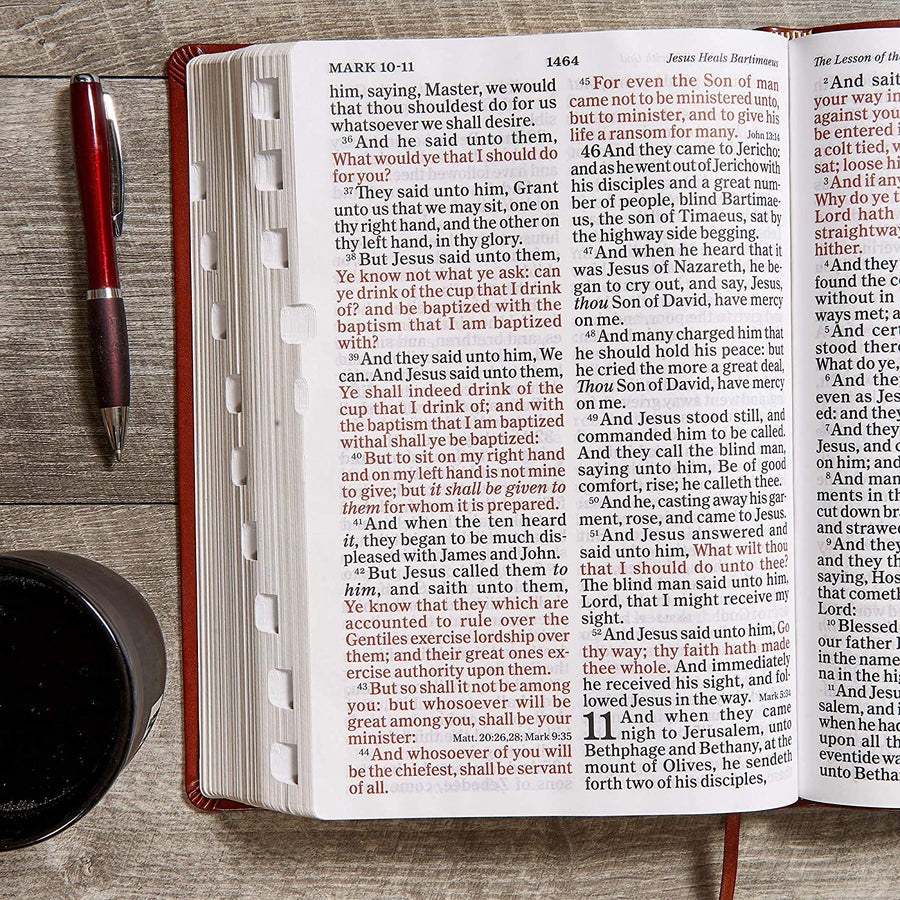 MARK 10-11
1464
Jesus Heals Bartimaeus
him, saying, Master, we would
that thou shouldest do for us
whatsoever we shall desire.
36 And he said unto them,
What would ye that I should do
for you?
37 They said unto him, Grant
unto us that we may sit, one on
thy right hand, and the other on
thy left hand, in thy glory.
38 But Jesus said unto them,
Ye know not what ye ask: can
ye drink of the cup that I drink
of? and be baptized with the
baptism that I am baptized
with?
39 And they said unto him, We
can. And Jesus said unto them,
Ye shall indeed drink of the
cup that I drink of; and with
the baptism that I am baptized
withal shall ye be baptized:
40 But to sit on my right hand
and on my left hand is not mine
to give; but it shall be given to
them for whom it is prepared.
41 And when the ten heard
it, they began to be much dis-
pleased with James and John.
42 But Jesus called them to
him, and saith unto them,
Ye know that they which are
accounted to rule over the
Gentiles exercise lordship over
them; and their great ones ex-
ercise authority upon them.
43 But so shall it not be among
you: but whosoever will be
great among you, shall be your
minister: Matt. 20:26,28; Mark 9:35
44 And whosoever of you will
be the chiefest, shall be servant
of all.
45 For even the Son of man
came not to be ministered unto,
but to minister, and to give his
life a ransom for many. John 13:14
46 And they came to Jericho:
and as he went out of Jericho with
his disciples and a great num-
ber of people, blind Bartimae-
us, the son of Timaeus, sat by
the highway side begging.
47 And when he heard that it
was Jesus of Nazareth, he be-
gan to cry out, and say, Jesus,
thou Son of David, have mercy
on me.
48 And many charged him that
he should hold his peace: but
he cried the more a great deal,
Thou Son of David, have mercy
on me.
49 And Jesus stood still, and
commanded him to be called.
And they call the blind man,
saying unto him, Be of good
comfort, rise; he calleth thee.
50 And he, casting away his gar-
ment, rose, and came to Jesus.
51 And Jesus answered and
said unto him, What wilt thou
that I should do unto thee?
The blind man said unto him,
Lord, that I might receive my
sight.
52 And Jesus said unto him, Go
thy way; thy faith hath made
thee whole. And immediately
he received his sight, and fol-
lowed Jesus in the way. Mark 5:34
11 And when they came
nigh to Jerusalem, unto
Bethphage and Bethany, at the
mount of Olives, he sendeth
forth two of his disciples,
The Lesson of the
2 And sait
your way in
against you
be entered i
a colt tied, w
sat; loose hi
3 And if any
Why do ye t
Lord hath
straightway
hither.
4 And they
found the co
without in
ways met; a
5 And cert
stood there
What do ye,
6 And they
even as Jes
ed: and they
7 And they
Jesus, and c
on him; and
8 And man
ments in th
cut down bra
and strawed
9 And they
and they th
saying, Hos
that cometh
Lord:
10 Blessed
our father
in the name
na in the hig
11 And Jesu
salem, and i
when he had
upon all th
eventide wa
unto Betha